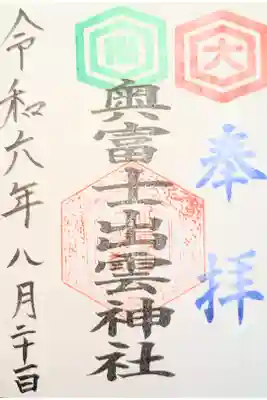 奉拝
大
奥富士出雲神社
令和六年八月二十一日